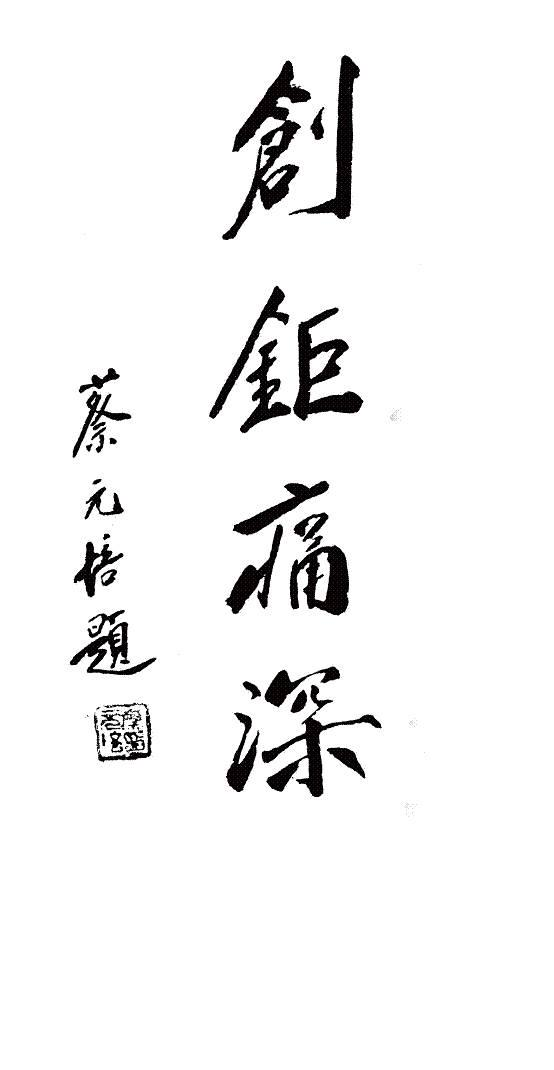 創鉅痛深
蔡元培題